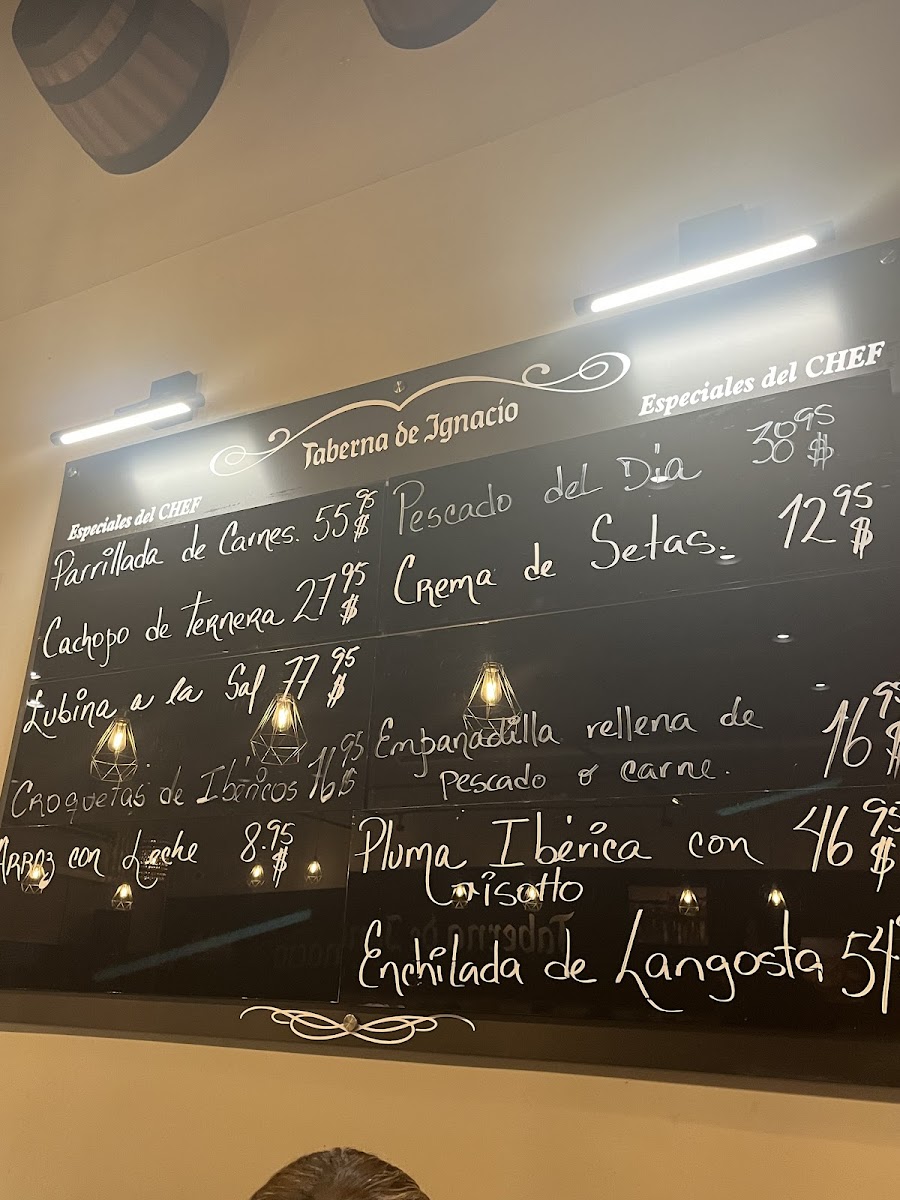 Taberna de Ignacio
Especiales del CHEF
Parrillada de Carnes. 55 95 $
Cachopo de Ternera 27 95 $
Lubina a la Sal 77 95 $
Croquetas de Ibéricos 16 95 $
Arroz con Leche 8.95 $
Especiales del CHEF
Pescado del Dia 30 95 $
Crema de Setas. 12 95 $
Empanadilla rellena de 16 95 $
Pescado o carne.
Pluma Ibérica con 46 95 $
risotto
Enchilada de Langosta 54